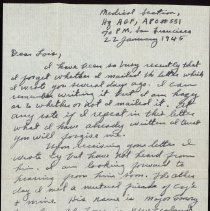 Medical Section,
Hq AGF, APO #551
To P.M. San Francisco
22 January 1945
Dear Lois,
I have been so busy recently that
I forget whether I mailed the letter which
I wrote you several days ago. I can
remember writing it but I am hazy
as to whether or not I mailed it. At
any rate if I repeat in this letter
what I have already written I trust
you will forgive me.
Upon receiving your letter I
wrote by but have not heard from
him. I am looking forward to
hearing from him soon. The other
day I met a mutual friend of
mine. His name is Major Emory